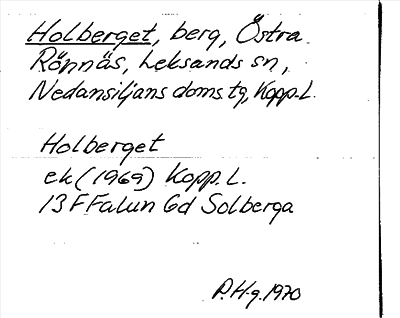 Holberget, berg, Östra
Rönnäs, Leksands sn,
Nedansiljans doms. tg, Kopp. L.
Holberget
ek (1969) Kopp. L.
13 F Falun 6d Solberga
P. H-g. 1970